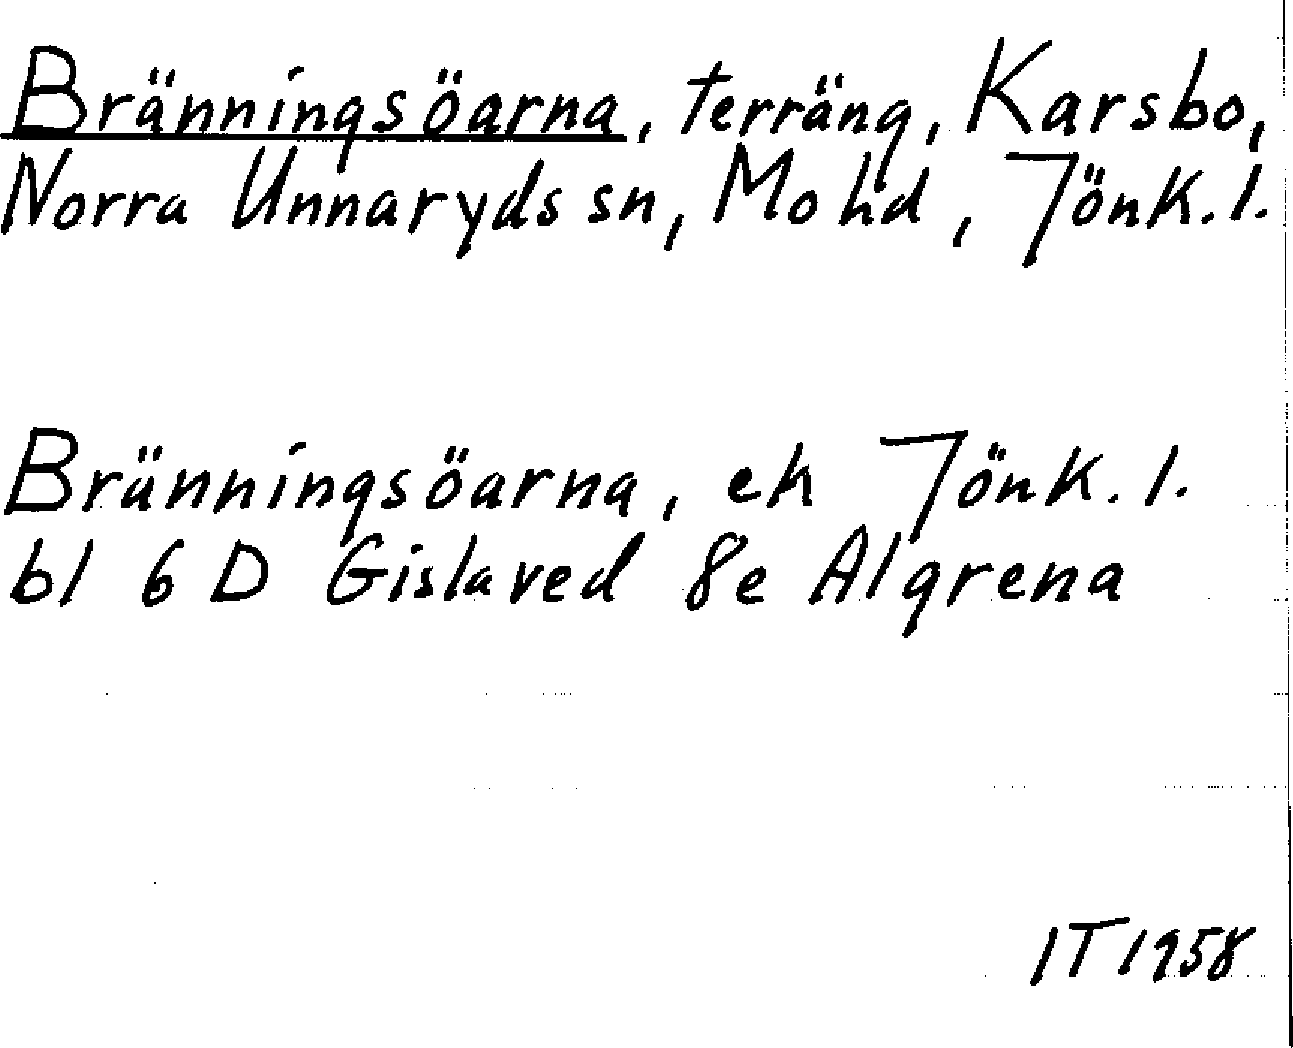 Bränningsöarna, terräng, Karsbo,
Norra Unnaryds sn, Mo hd, Jönk. l.
Bränningsöarna, ek Jönk. l.
bl 6 D Gislaved 8e Algrena
IT 1958